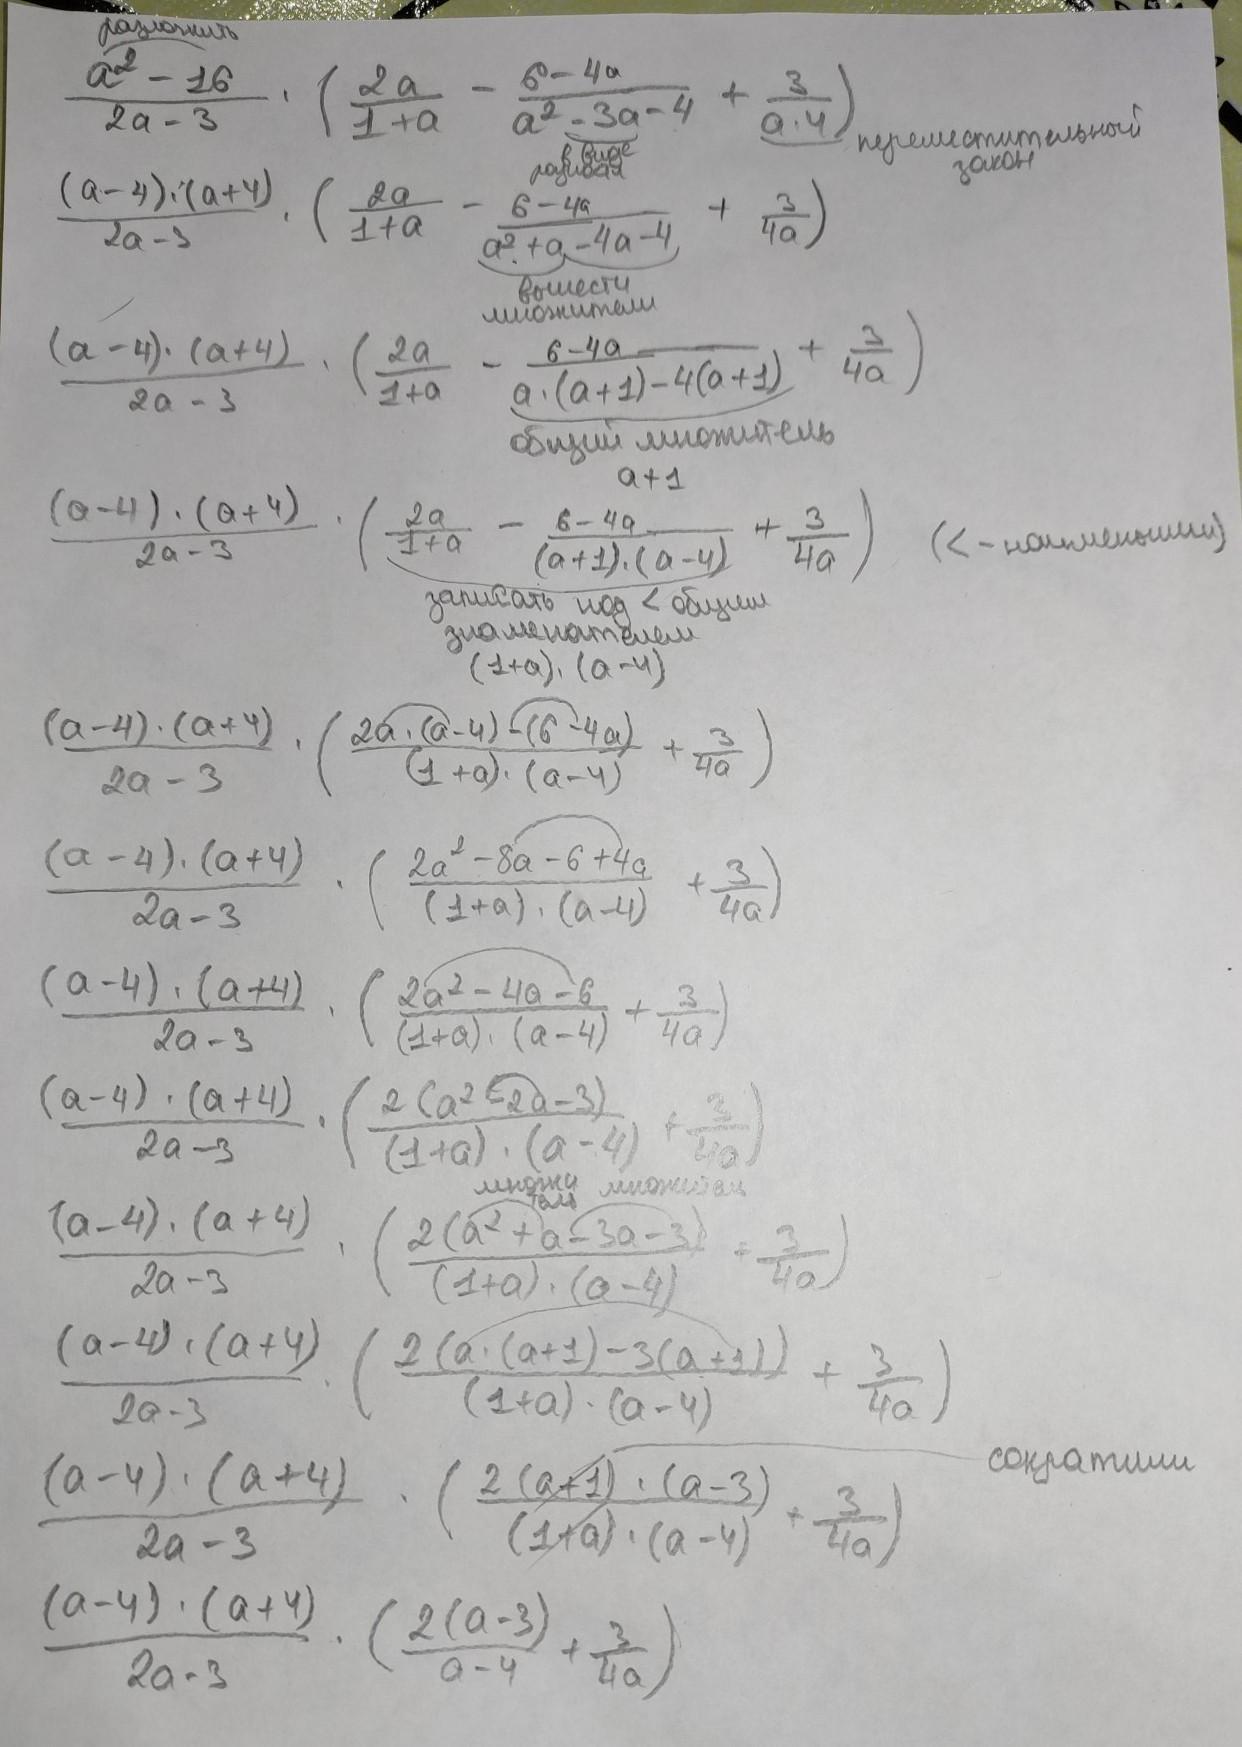 разложить
(a² - 16)/(2a - 3) · (2a/(1+a) - (6 - 4a)/(a² - 3a - 4) + 3/(a·4))
переместительный закон
в виде
разности
((a - 4)·(a+4))/(2a - 3) · (2a/(1+a) - (6 - 4a)/(a² + a - 4a - 4) + 3/(4a))
вынести
множители
((a - 4)·(a+4))/(2a - 3) · (2a/(1+a) - (6 - 4a)/(a·(a+1) - 4(a+1)) + 3/(4a))
общий множитель
a+1
((a - 4)·(a+4))/(2a - 3) · (2a/(1+a) - (6 - 4a)/((a+1)·(a - 4)) + 3/(4a)) (< - наименьший)
записать под < общим
знаменателем
(1+a)·(a - 4)
((a - 4)·(a+4))/(2a - 3) · ((2a·(a - 4) - (6 - 4a))/((1+a)·(a - 4)) + 3/(4a))
((a - 4)·(a+4))/(2a - 3) · ((2a² - 8a - 6 + 4a)/((1+a)·(a - 4)) + 3/(4a))
((a - 4)·(a+4))/(2a - 3) · ((2a² - 4a - 6)/((1+a)·(a - 4)) + 3/(4a))
((a - 4)·(a+4))/(2a - 3) · (2(a² - 2a - 3)/((1+a)·(a - 4)) + 3/(4a))
((a - 4)·(a+4))/(2a - 3) · (2(a² + a - 3a - 3)/((1+a)·(a - 4)) + 3/(4a))
((a - 4)·(a+4))/(2a - 3) · (2(a·(a+1) - 3(a+1))/((1+a)·(a - 4)) + 3/(4a))
сократили
((a - 4)·(a+4))/(2a - 3) · (2(a+1)·(a - 3)/((1+a)·(a - 4)) + 3/(4a))
((a - 4)·(a+4))/(2a - 3) · (2(a - 3)/(a - 4) + 3/(4a))